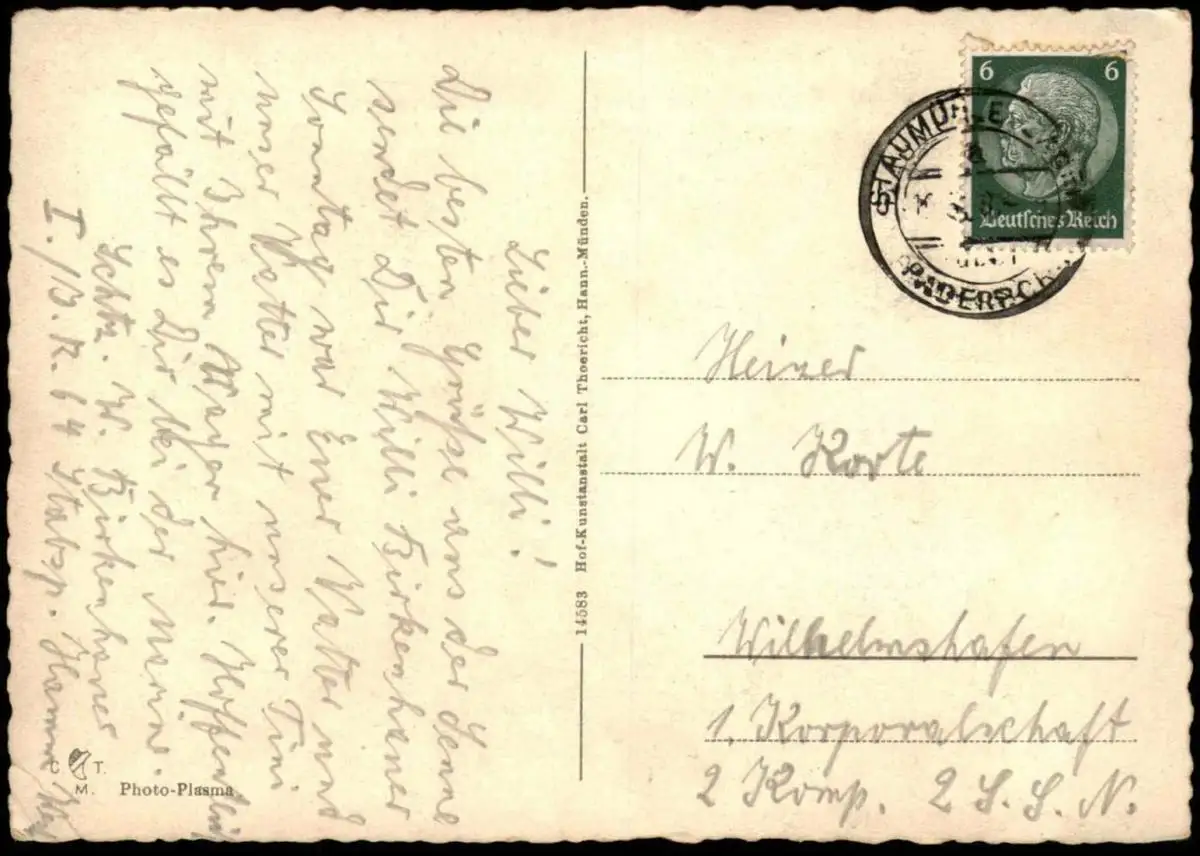 Lieber Willi!
Die besten Grüße aus der Senne
sendet Dir Willi Birkenhauer
Sonntag war Euer Vatter und
unser Vatter mit unserer Tini
mit Ihrem Wagen hier. Hoffentlich
gefällt es Dir bei der Marine.
Schtz. W. Birkenhauer
I./I.R. 64 Stabsp. Hamm
14583 Hof-Kunstanstalt Carl Thoericht, Hann.-Münden.
C T.
M. Photo-Plasma
6 6
Deutsches Reich
STAUMÜHLE
PADERBORN
Heizer
W. Korte
Wilhelmshafen
1. Korporalschaft
2 Komp. 2 S. S. N.